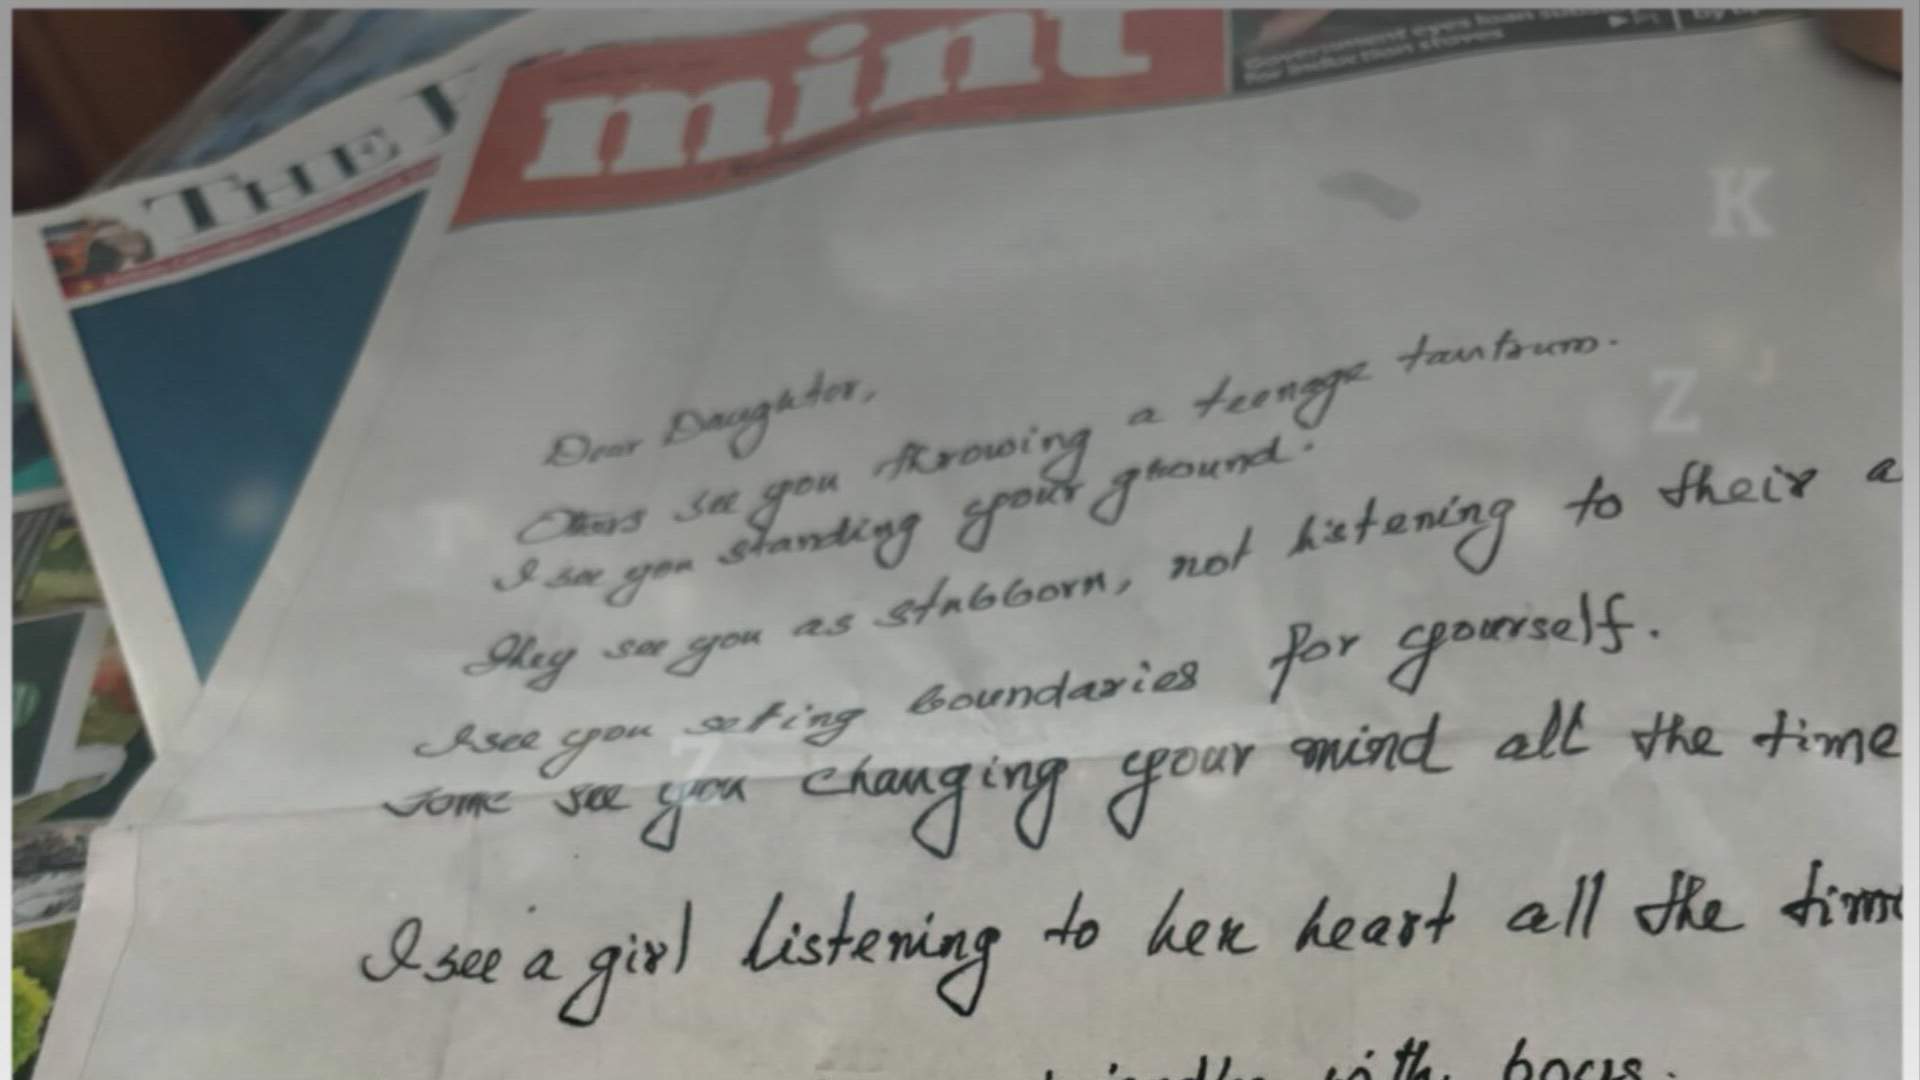 THE
mint
Government eyes loan
for induction stoves
K
Z
J
Dear Daughter,
Others see you throwing a teenage tantrum.
I see you standing your ground.
They see you as stubborn, not listening to their a
I see you seting boundaries for yourself.
Z
Some see you changing your mind all the time
I see a girl listening to her heart all the time
with boys.